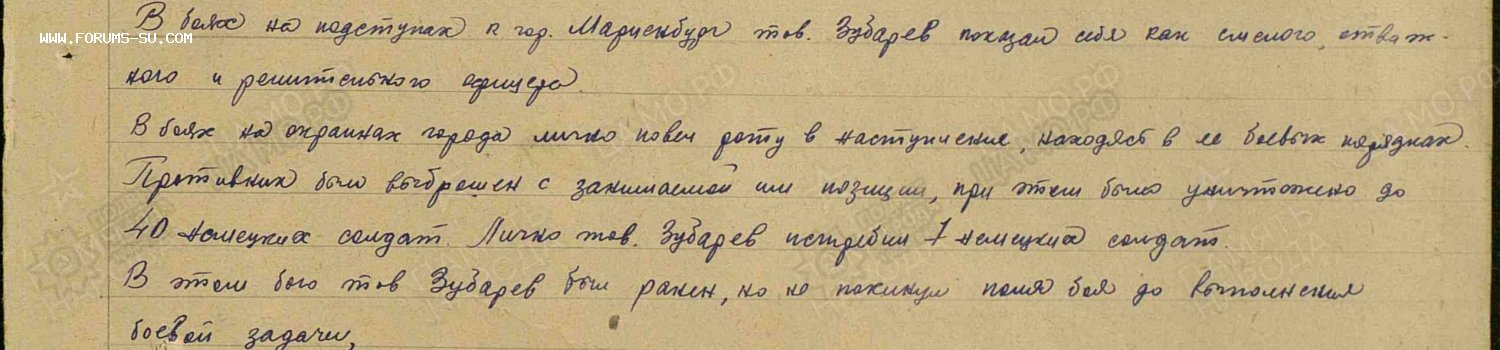 В боях на подступах к гор. Мариенбург тов. Зубарев показал себя как смелого, отваж-
WWW.FORUMS-SU.COM
ного и решительного офицера.
В боях на окраинах города лично повел роту в наступление, находясь в ее боевых порядках.
Противник был выброшен с занимаемой им позиции, при этом было уничтожено до
40 немецких солдат. Лично тов. Зубарев истребил 7 немецких солдат.
В этом бою тов Зубарев был ранен, но не покинул поля боя до выполнения
боевой задачи,